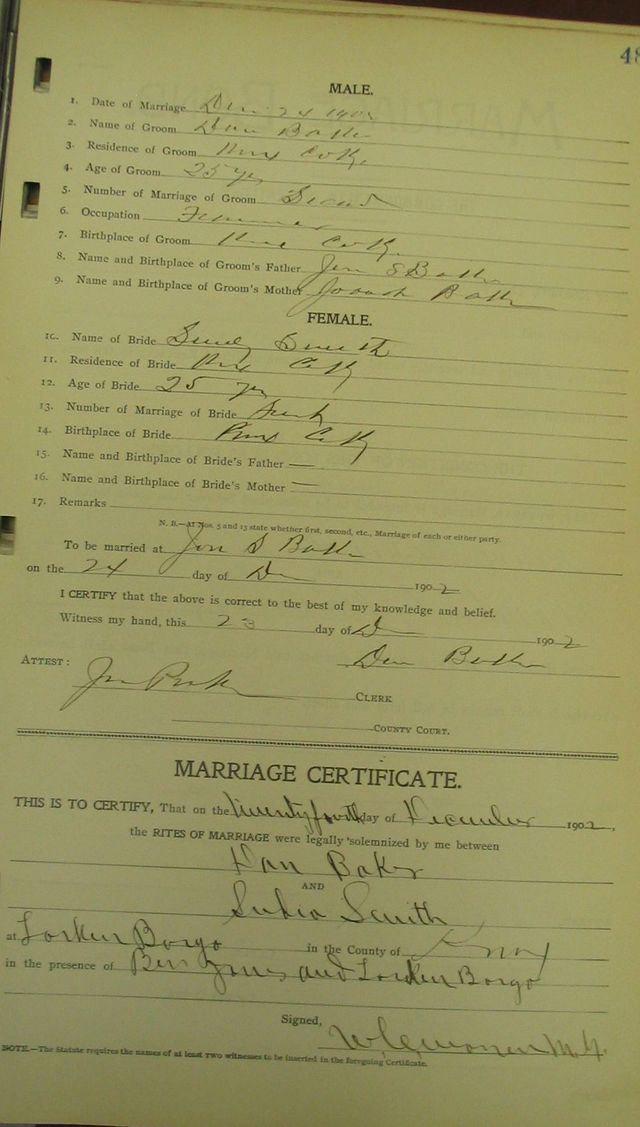 48
MALE.
1. Date of Marriage Dec 24 1902
2. Name of Groom Dan Baker
3. Residence of Groom Knox Co Ky
4. Age of Groom 25 yrs
5. Number of Marriage of Groom Second
6. Occupation Farmer
7. Birthplace of Groom Knox Co Ky
8. Name and Birthplace of Groom's Father S Baker
9. Name and Birthplace of Groom's Mother Baker
FEMALE.
10. Name of Bride Smith
11. Residence of Bride Knox Co Ky
12. Age of Bride 25 yrs
13. Number of Marriage of Bride First
14. Birthplace of Bride Knox Co Ky
15. Name and Birthplace of Bride's Father —
16. Name and Birthplace of Bride's Mother —
17. Remarks
N. B.—At Nos. 5 and 13 state whether first, second, etc., Marriage of each or either party.
To be married at S Baker
on the 24 day of Dec 1902
I CERTIFY that the above is correct to the best of my knowledge and belief.
Witness my hand, this 23 day of Dec 1902
Dan Baker
ATTEST:
CLERK
COUNTY COURT.
MARRIAGE CERTIFICATE.
THIS IS TO CERTIFY, That on the twenty fourth day of December 1902,
the RITES OF MARRIAGE were legally solemnized by me between
Dan Baker
AND
Smith
at in the County of Knox
in the presence of Ben Jones and
Signed, M. G.
NOTE.—The Statute requires the names of at least two witnesses to be inserted in the foregoing Certificate.